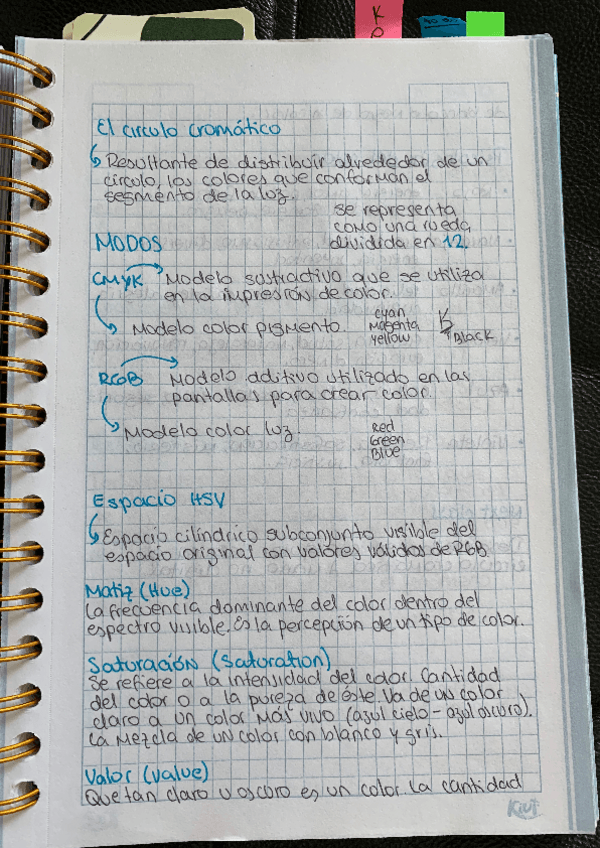 K
O
El circulo cromático
Resultante de distribuir alrededor de un
circulo, los colores que conforman el
segmento de la luz.
se representa
como una rueda,
dividida en 12.
MODOS
CMYK Modelo sustractivo que se utiliza
en la impresión de color.
Modelo color pigmento.
cyan
Magenta
Yellow
K
Black
RGB Modelo aditivo utilizado en las
pantallas para crear color.
Modelo color luz.
Red
Green
Blue
Espacio HSV
Espacio cilíndrico subconjunto visible del
espacio original con valores válidos de RGB.
Matiz (Hue)
La frecuencia dominante del color dentro del
espectro visible. Es la percepción de un tipo de color.
Saturación (saturation)
Se refiere a la intensidad del color. Cantidad
del color o a la pureza de éste. Va de un color
claro a un color más vivo (azul cielo - azul oscuro).
La mezcla de un color con blanco y gris.
Valor (value)
Que tan claro u oscuro es un color. La cantidad
Kiut